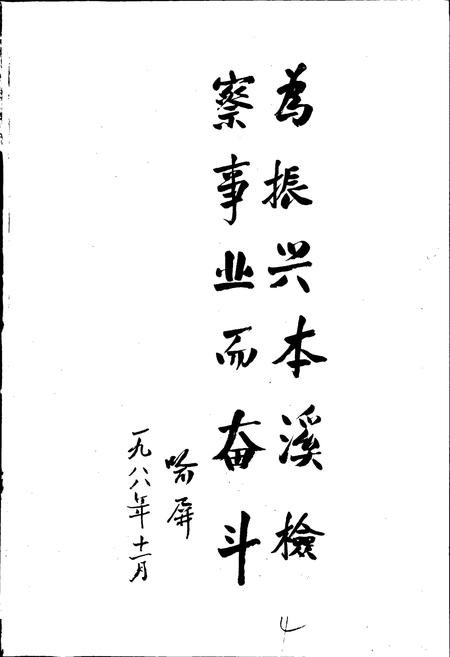 為振兴本溪檢
察事业而奋斗
喻屏
一九八八年十一月
4